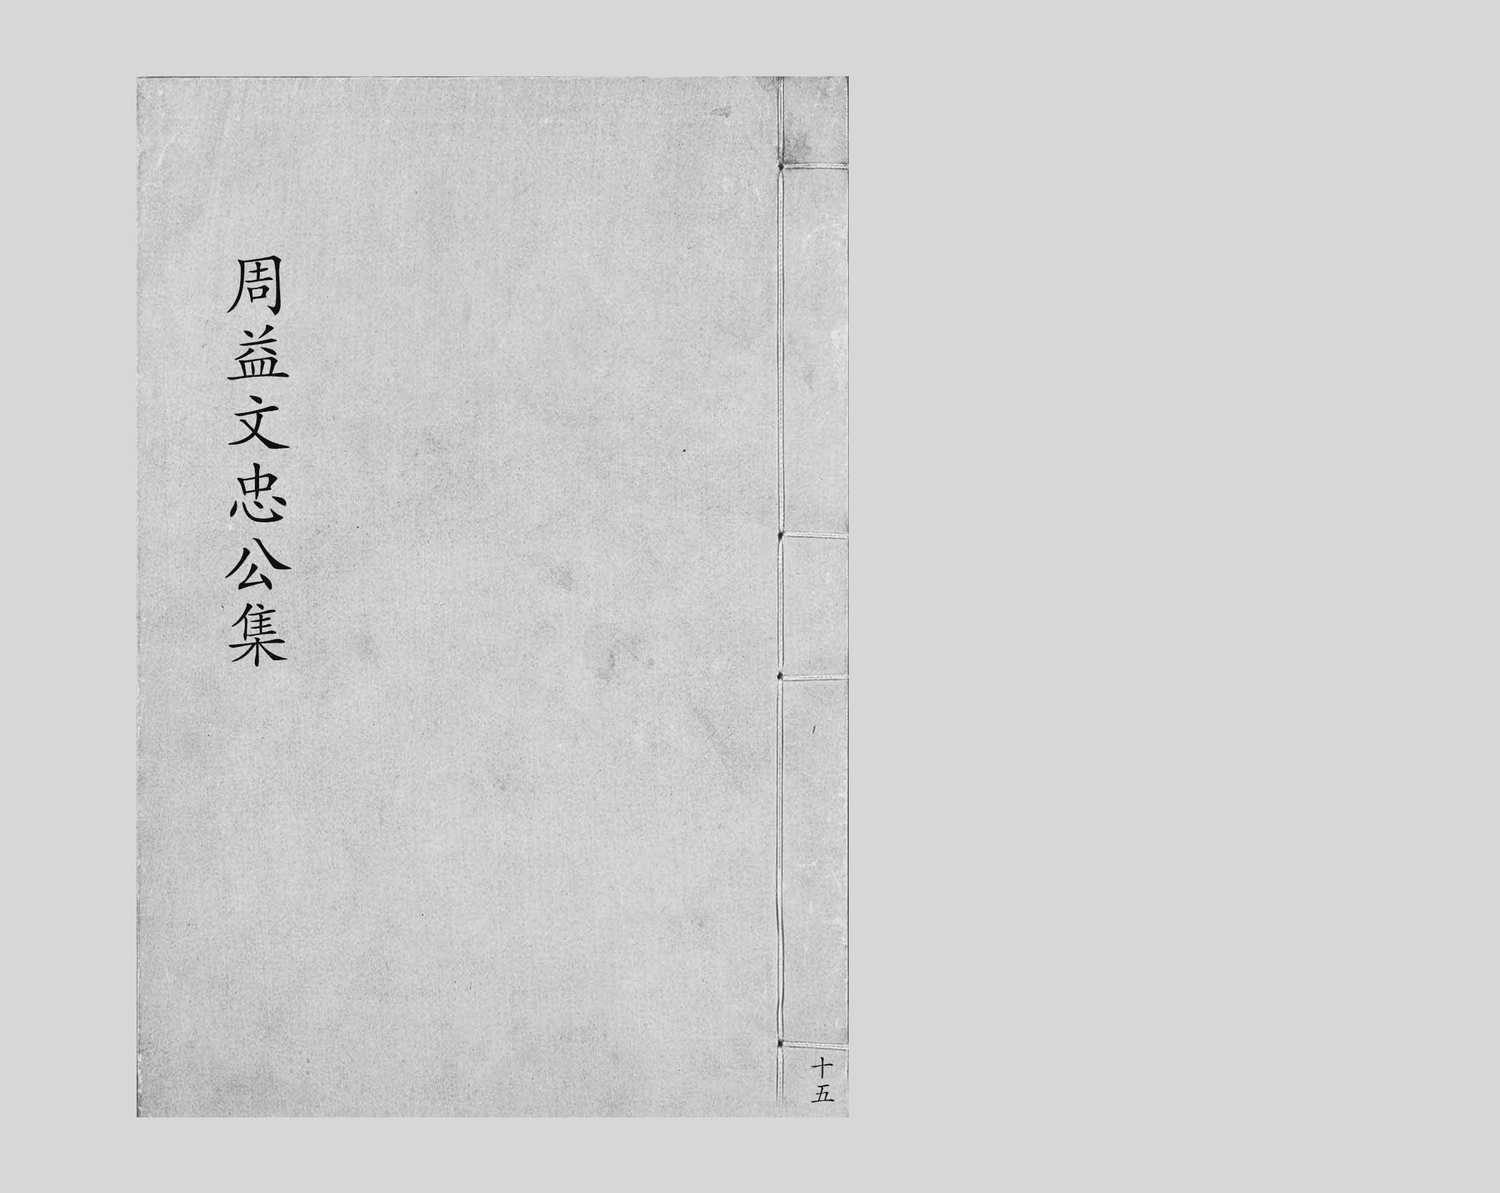 周益文忠公集
十五